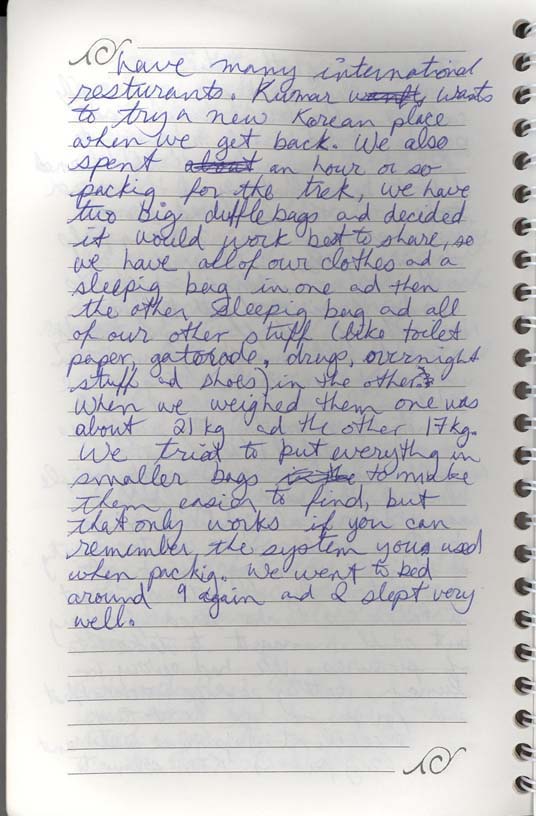 have many international
resturants. Kumar wants
to try a new Korean place
when we get back. We also
spent about an hour or so
packig for the trek, we have
two big dufflebags and decided
it would work best to share, so
we have all of our clothes ad a
sleepig bag in one ad then
the other sleepig bag ad all
of our other stuff (like toilet
paper, gatorade, drugs, overnight
stuff ad shoes) in the other.
When we weighed them one was
about 21 kg ad the other 17kg.
We tried to put everythg in
smaller bags to make
them easier to find, but
that only works if you can
remember the system you used
when packig. We went to bed
around 9 again and I slept very
well.